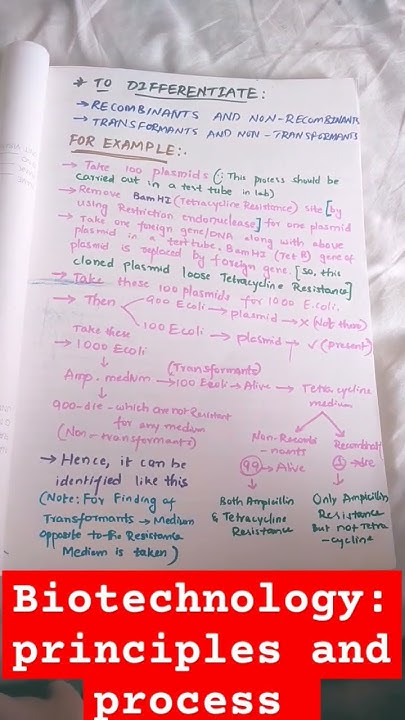 * TO DIFFERENTIATE:
→ RECOMBINANTS AND NON-RECOMBINANTS
→ TRANSFORMANTS AND NON-TRANSFORMANTS
FOR EXAMPLE:-
→ Take 100 plasmids (∴ This process should be
carried out in a test tube in lab)
→ Remove BamHI (Tetracycline Resistance) site [by
using Restriction endonuclease] for one plasmid
→ Take one foreign gene/DNA along with above
plasmid in a test tube. BamHI (Tet R) gene of
plasmid is replaced by foreign gene. [So, this
cloned plasmid loose Tetracycline Resistance]
→ Take these 100 plasmids for 1000 E.coli.
→ Then 900 Ecoli → plasmid → x (Not there)
100 Ecoli → plasmid → ✓ (present)
Take these
→ 1000 Ecoli
(Transformants)
Amp. medium → 100 Ecoli → Alive → Tetracycline
medium
900-die - which are not Resistant
for any medium
(Non-transformants)
Non-Recombi
-nants
99 → Alive
Both Ampicillin
& Tetracycline
Resistance
Recombinant
1 → die
Only Ampicillin
Resistance
But not Tetra
-cycline
→ Hence, it can be
identified like this
(Note: For Finding of
Transformants → Medium
opposite to the Resistance
Medium is taken)
Biotechnology:
principles and
process